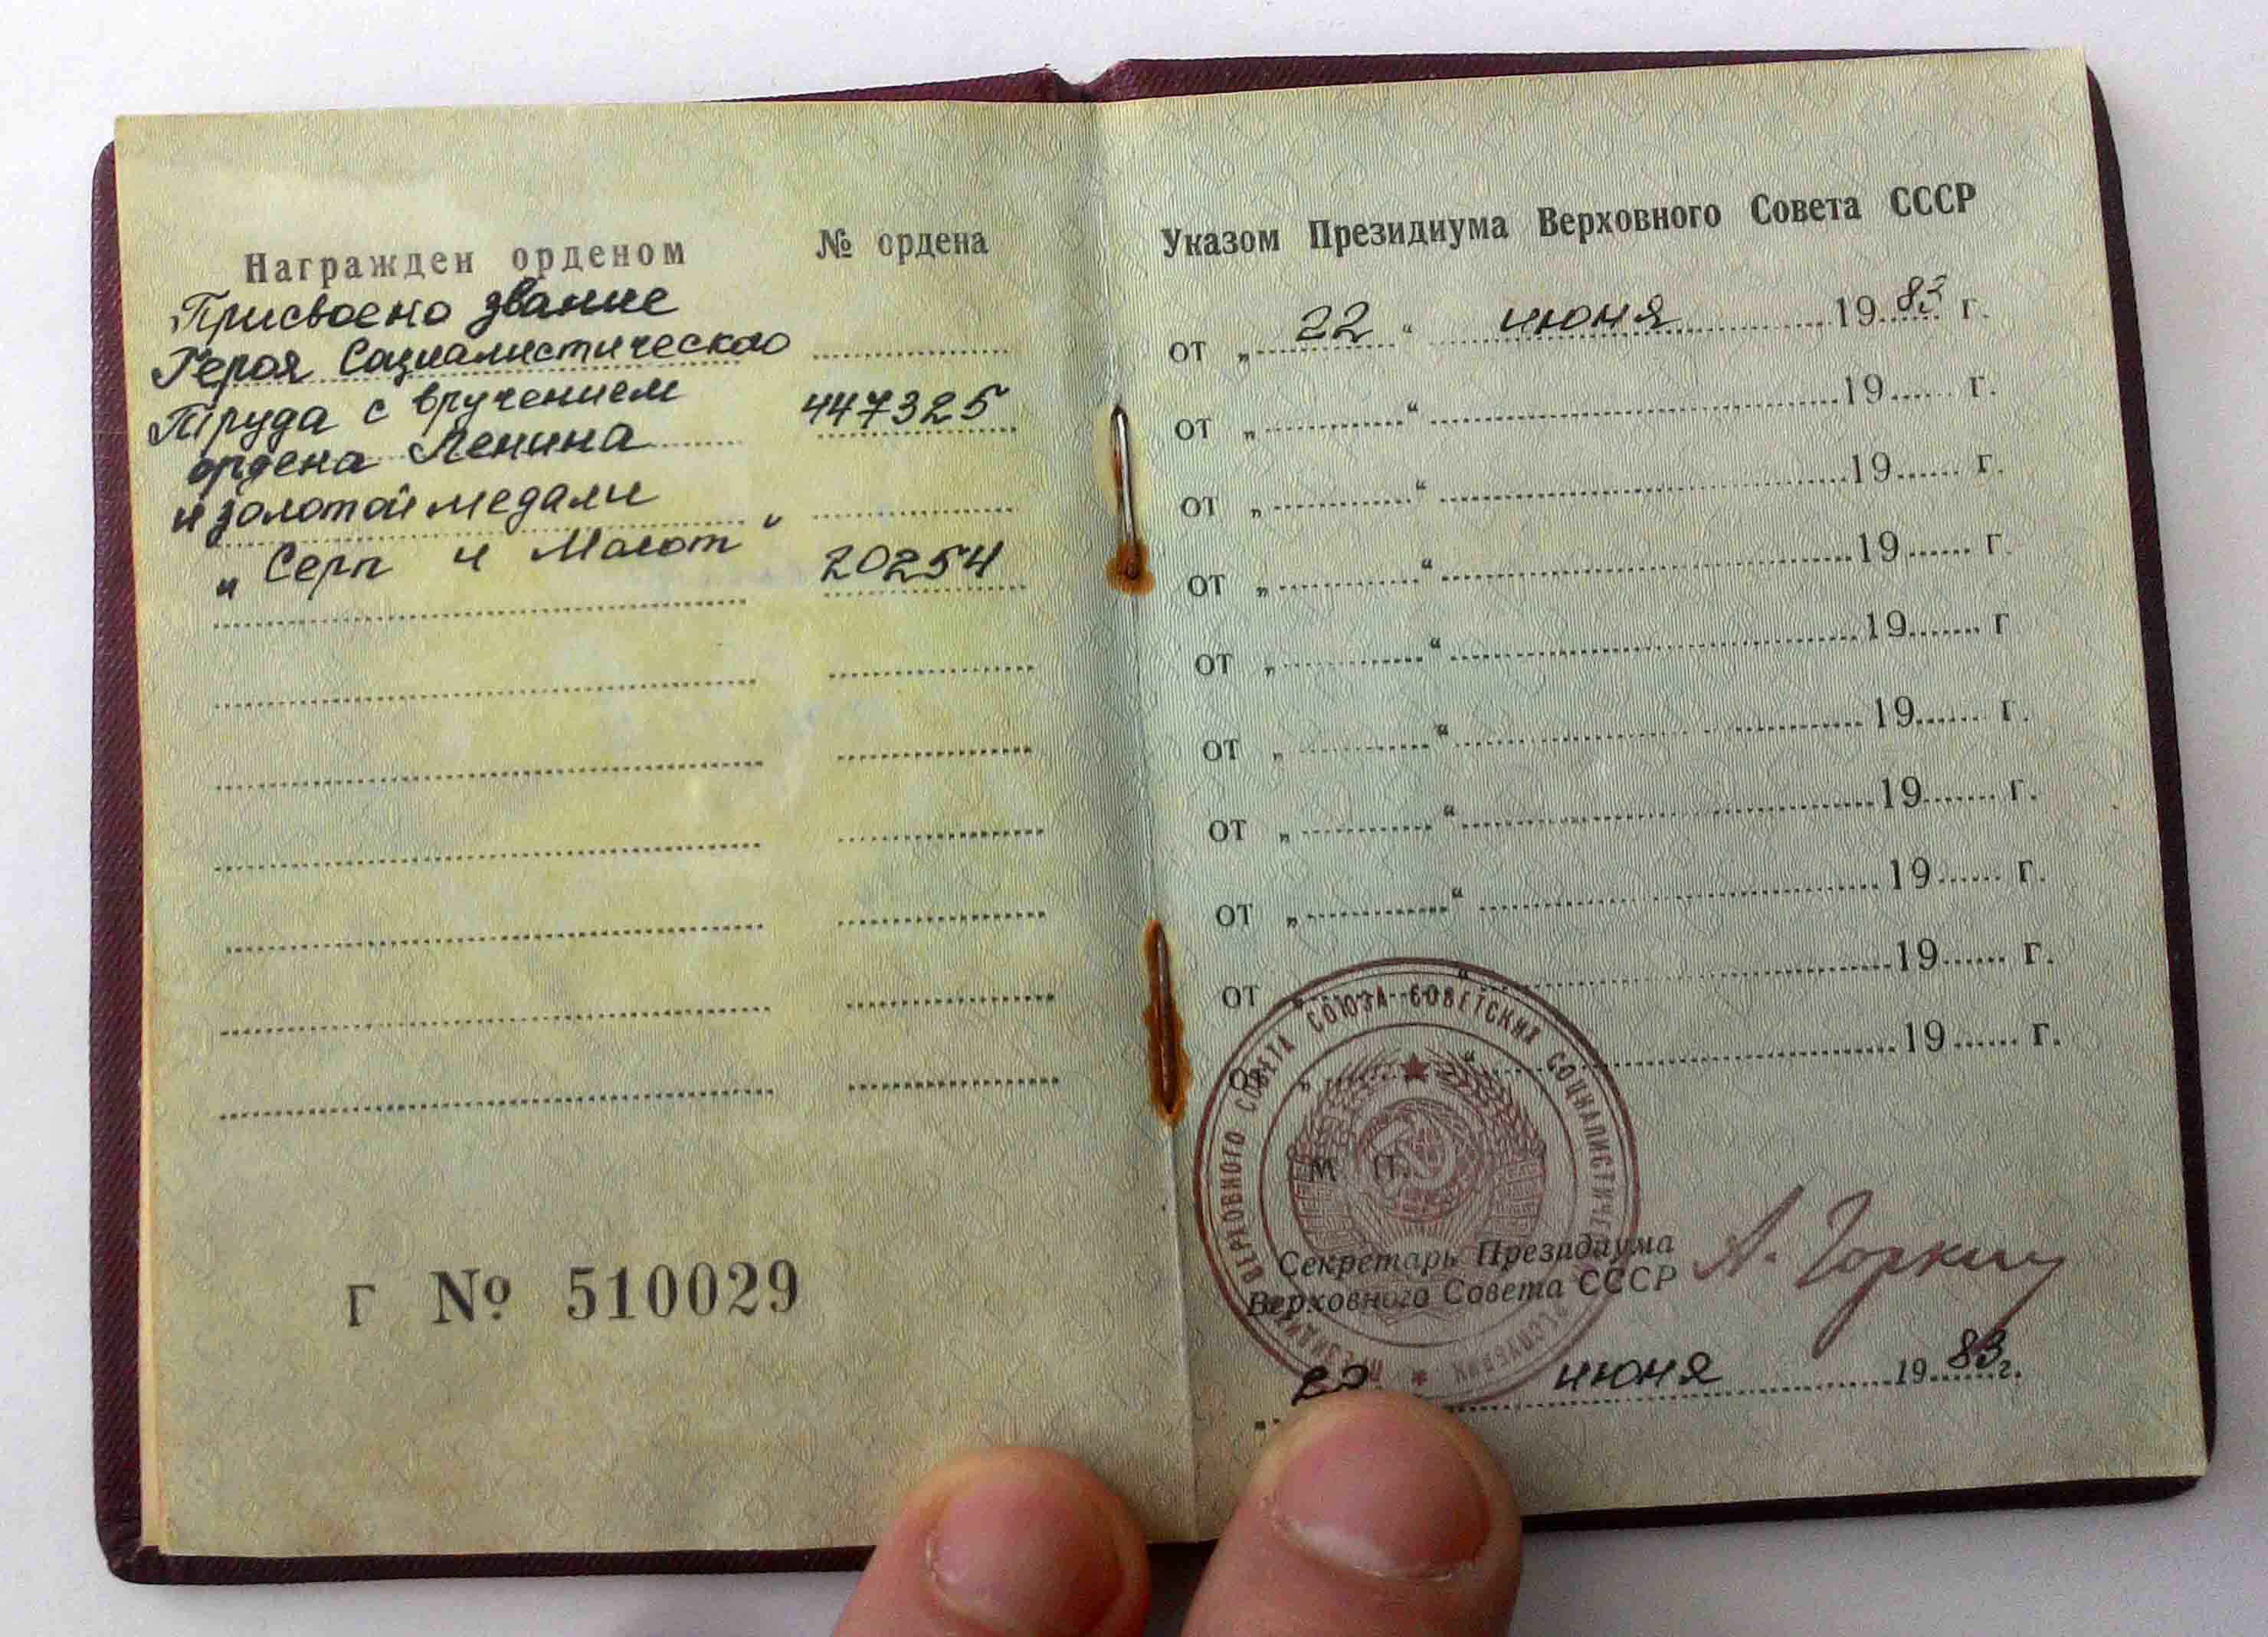 Награжден орденом № ордена
Присвоено звание
Героя Социалистического
Труда с вручением
ордена Ленина 447325
и золотой медали
„Серп и Молот“ 20254
Г № 510029
Указом Президиума Верховного Совета СССР
от „ 22 “ июня 19 83 г.
от „ “ 19 г.
от „ “ 19 г.
от „ “ 19 г.
от „ “ 19 г
от „ “ 19 г.
от „ “ 19 г.
от „ “ 19 г.
от „ “ 19 г.
от „ “ 19 г.
ПРЕЗИДИУМ ВЕРХОВНОГО СОВЕТА СОЮЗА СОВЕТСКИХ СОЦИАЛИСТИЧЕСКИХ РЕСПУБЛИК
М. П.
Секретарь Президиума
Верховного Совета СССР А. Горкин
22 июня 19 83 г.